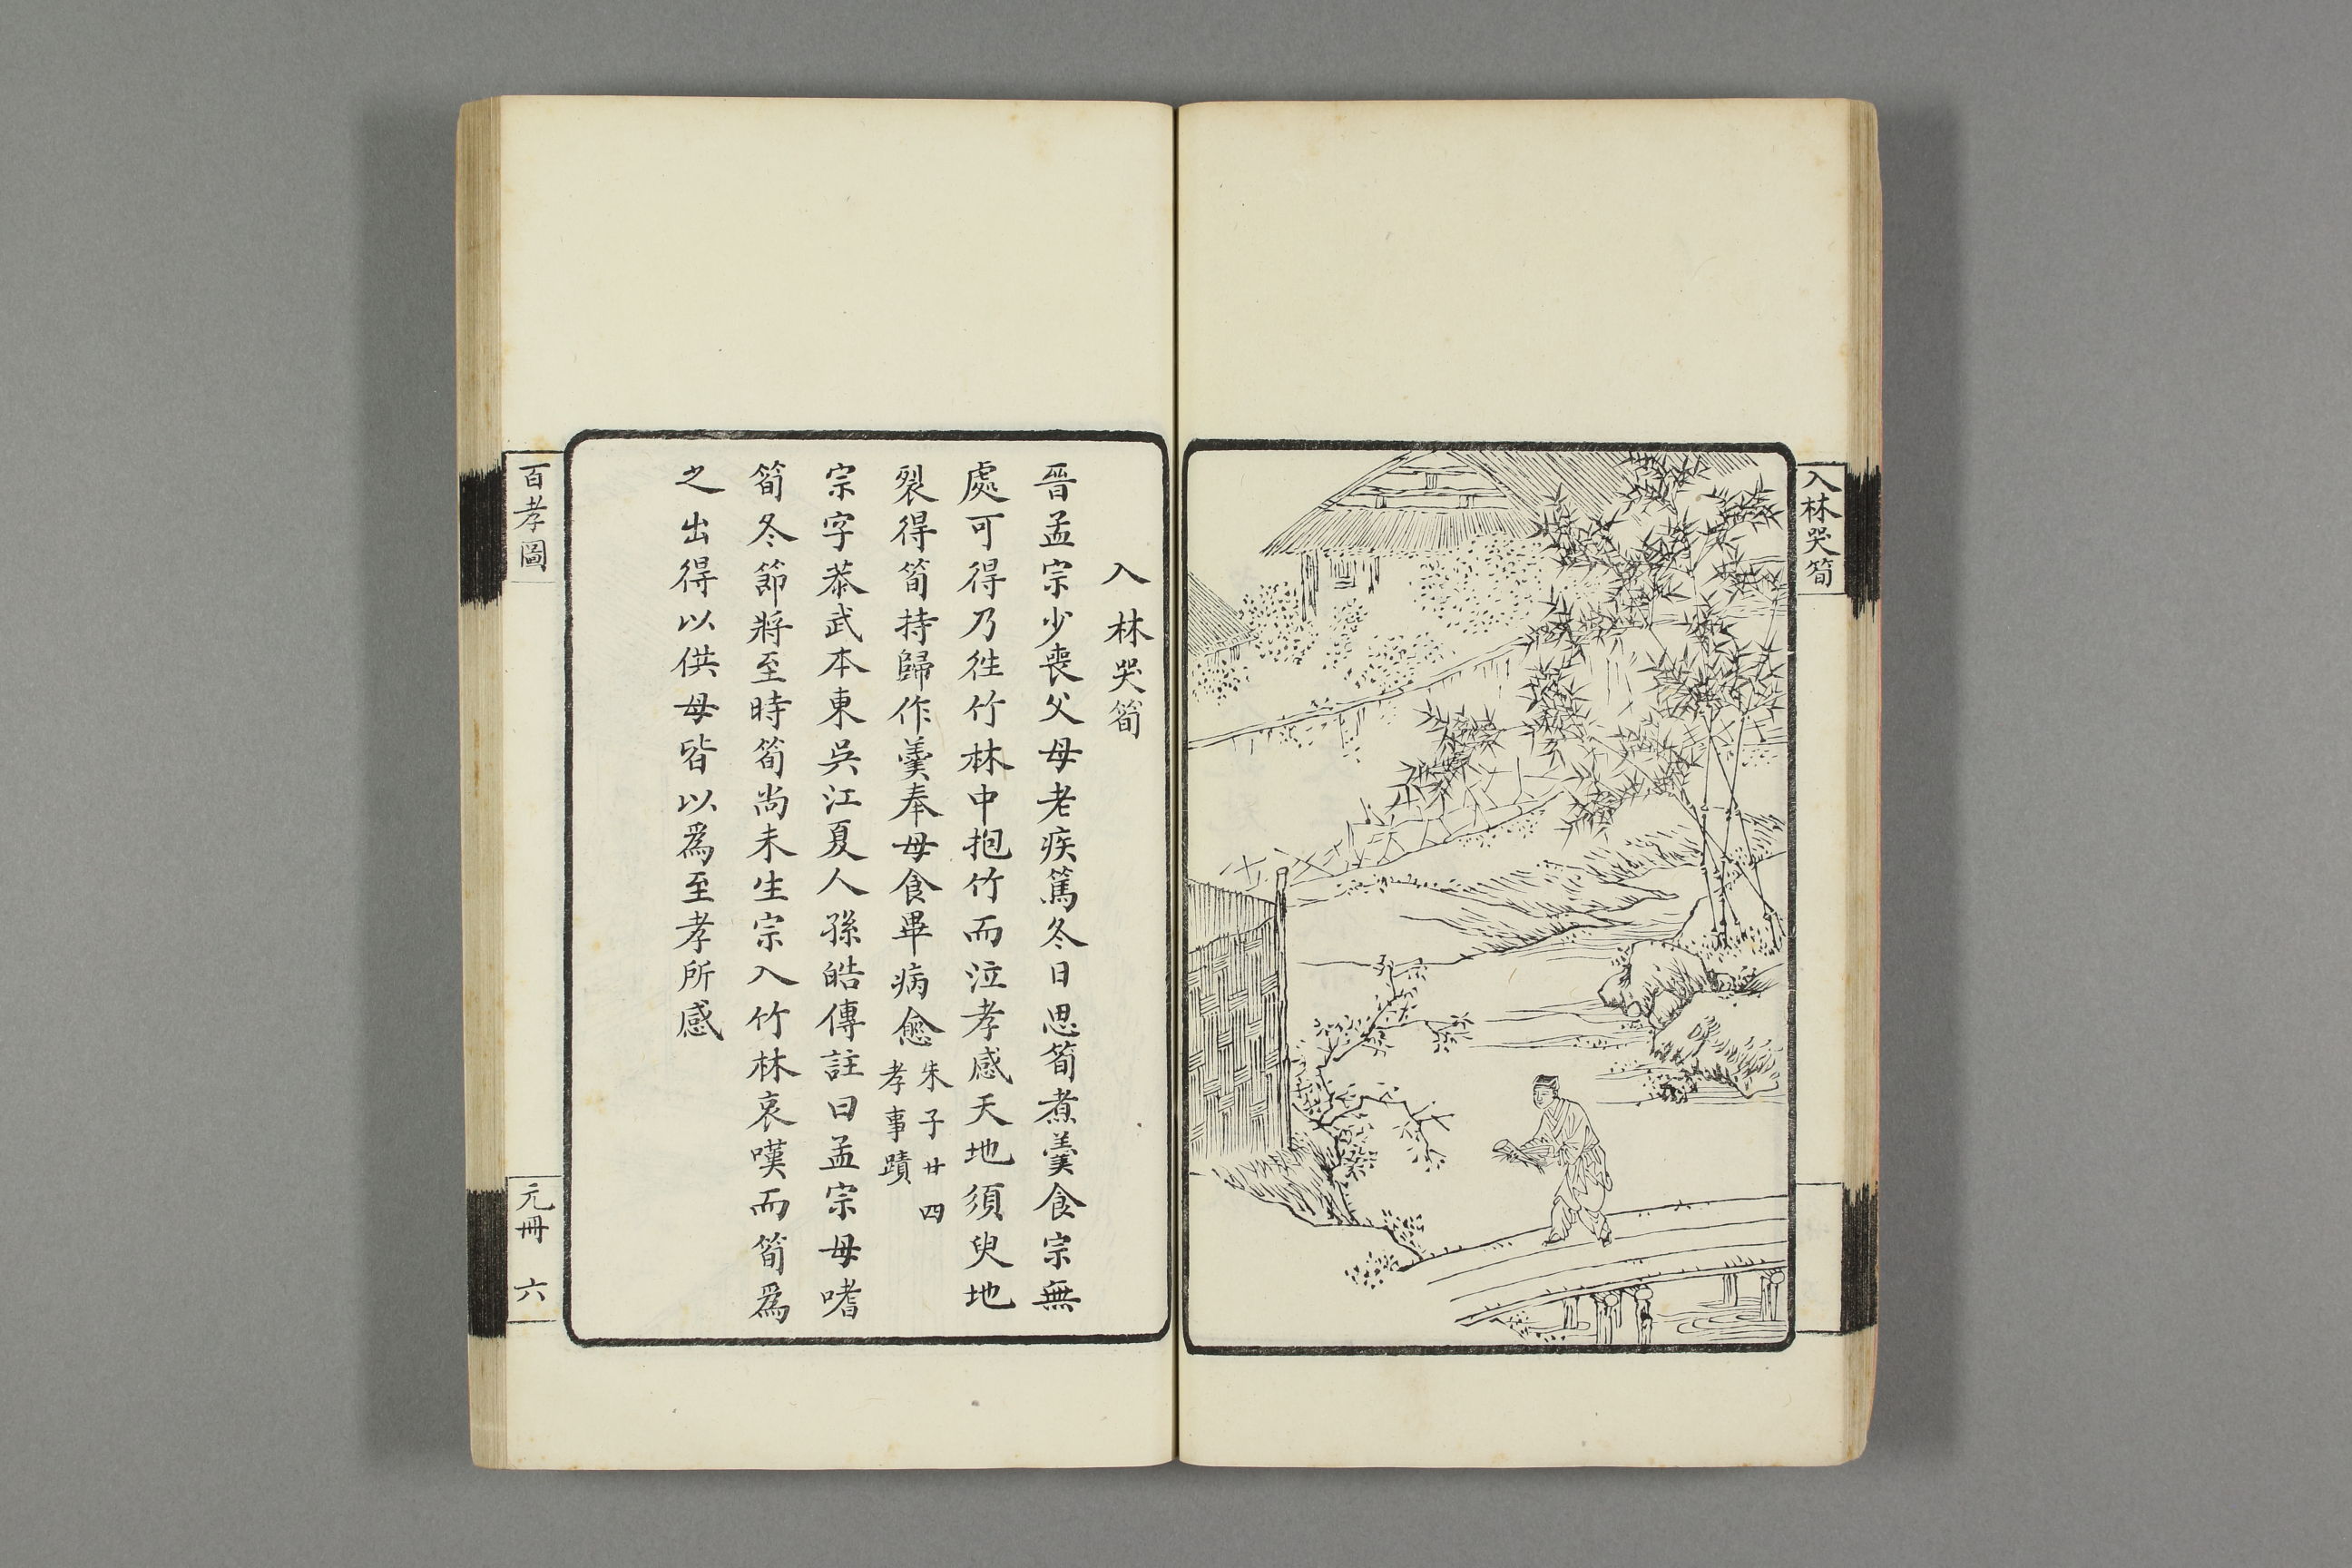 入林哭筍
入林哭筍
晉孟宗少喪父母老疾篤冬日思筍煮羹食宗無
處可得乃徃竹林中抱竹而泣孝感天地須臾地
裂得筍持歸作羹奉母食畢病愈朱子廿四
孝事蹟
宗字恭武本東吳江夏人孫皓傳註曰孟宗母嗜
筍冬節將至時筍尚未生宗入竹林哀嘆而筍爲
之出得以供母皆以爲至孝所感
百孝圖
元冊 六